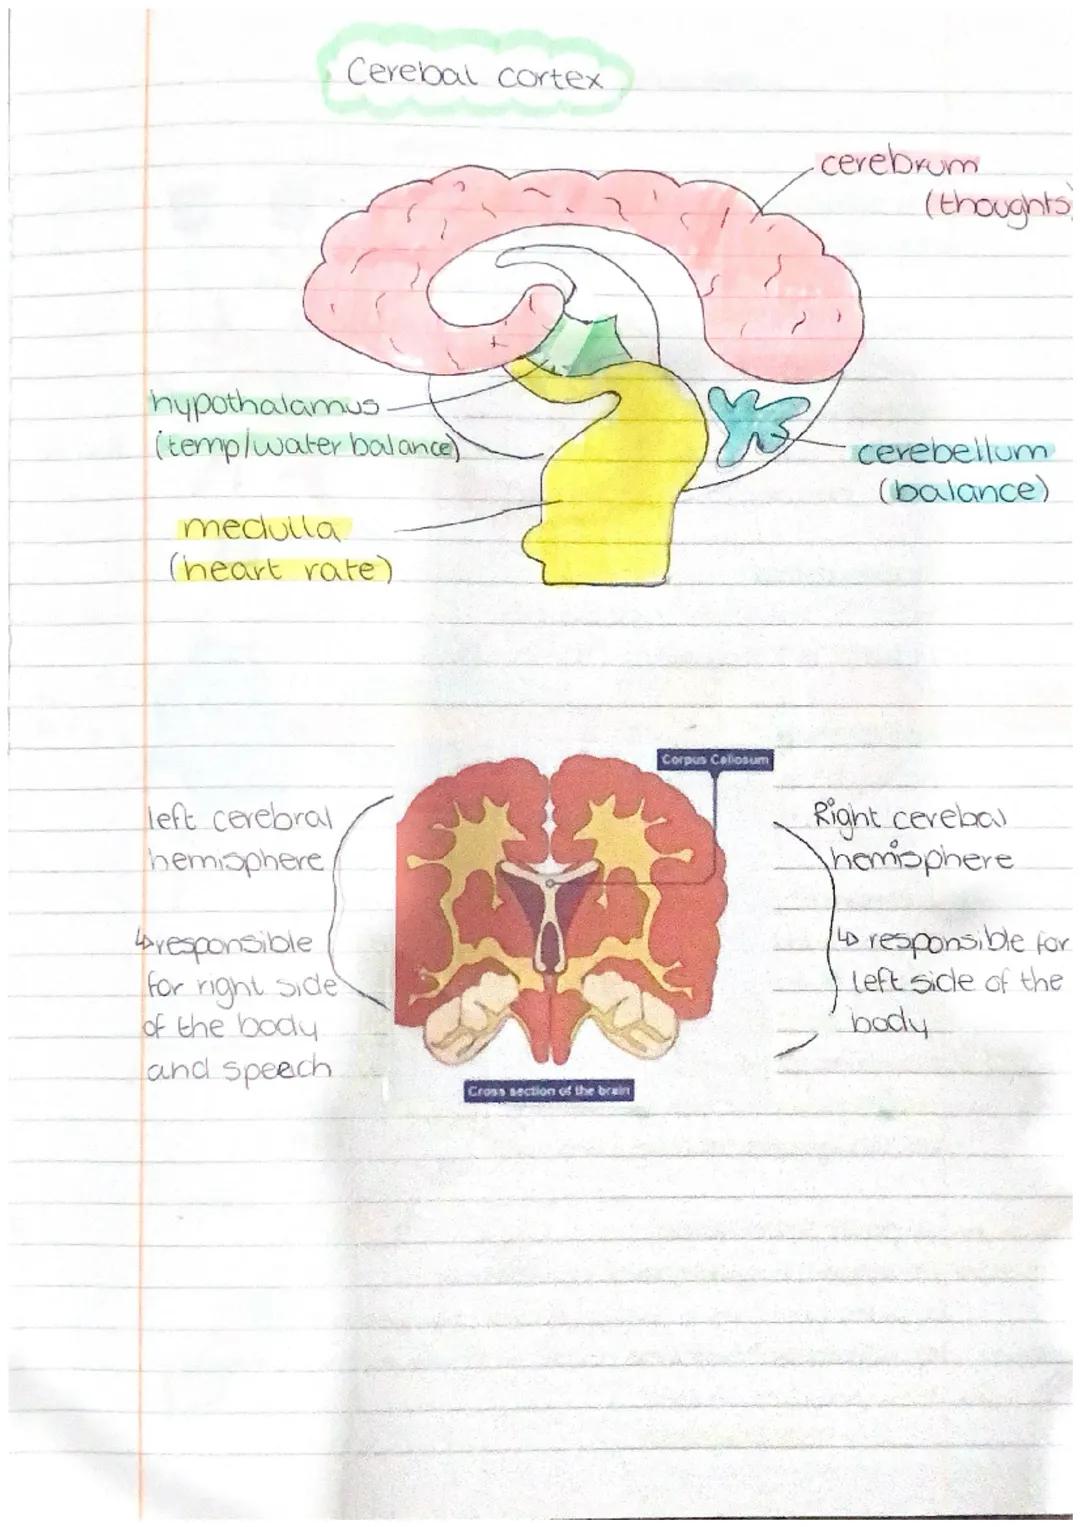 Cerebal cortex
cerebrum
(thoughts)
hypothalamus
(temp/water balance)
cerebellum
(balance)
medulla
(heart rate)
Corpus Callosum
left cerebral
hemisphere
↳responsible
for right side
of the body
and speech
Right cerebal
hemisphere
↳ responsible for
left side of the
body
Cross section of the brain